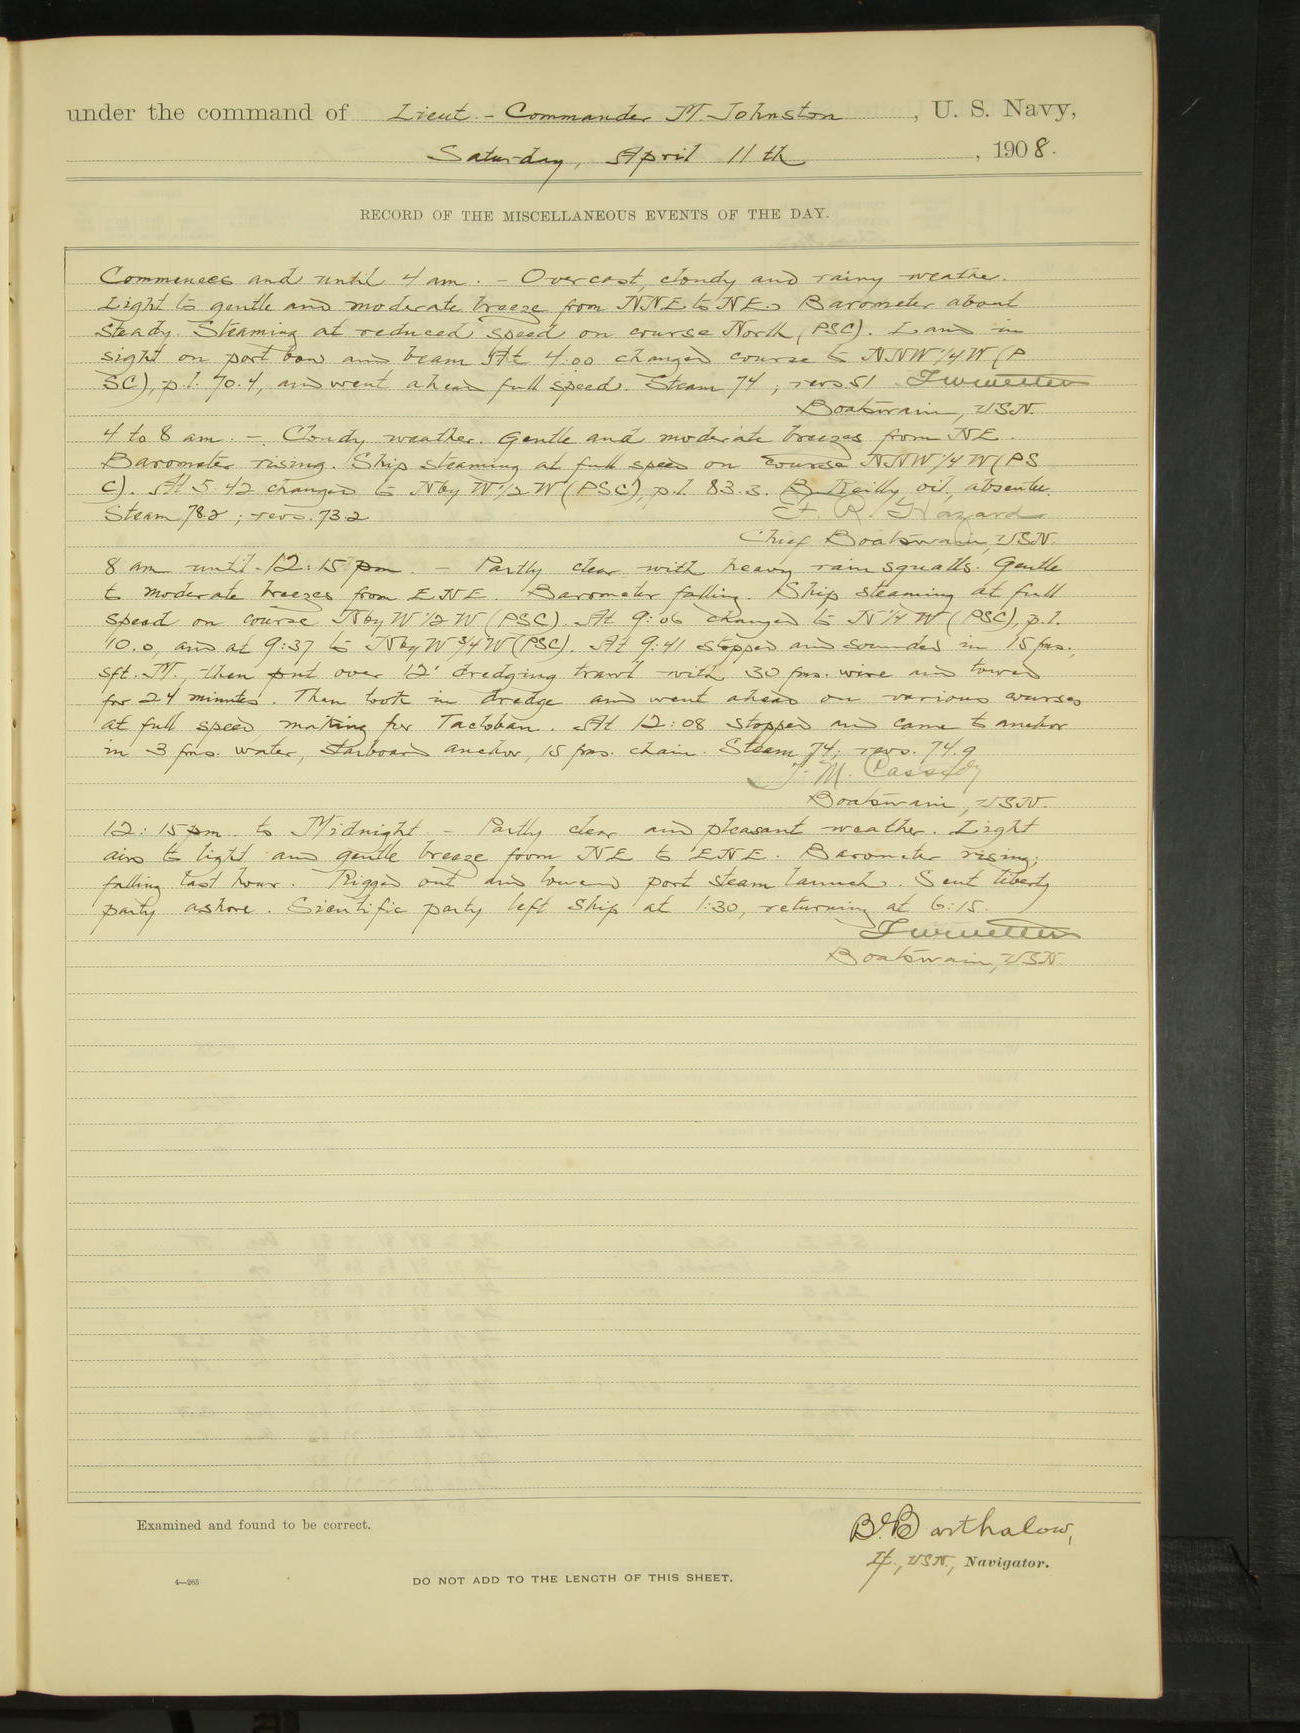 under the command of Lieut - Commander M. Johnston, U. S. Navy,
Saturday, April 11th, 1908.
RECORD OF THE MISCELLANEOUS EVENTS OF THE DAY.
Commences and until 4 am. - Overcast, cloudy and rainy weather.
Light to gentle and moderate breeze from NNE to NE. Barometer about
steady. Steaming at reduced speed on course North (PSC). Land in
sight on port bow and beam. At 4:00 changed course to NNW 1/4 W (P
SC), p.l. 70.4, and went ahead full speed. Steam 74; revs 51
Boatswain, USN.
4 to 8 am. - Cloudy weather. Gentle and moderate breezes from NE.
Barometer rising. Ship steaming at full speed on course NNW 1/4 W (PS
C). At 5:42 changed to N by W 1/2 W (PSC), p.l. 83.3. B. Reilly, oil, absentee.
Steam 78.2; revs. 73.2
F. R. Hazard
Chief Boatswain, USN.
8 am until 12:15 pm - Partly clear with heavy rain squalls. Gentle
to moderate breezes from ENE. Barometer falling. Ship steaming at full
speed on course N by W 1/2 W (PSC). At 9:06 changed to N 1/4 W (PSC), p.l.
10.0, and at 9:37 to N by W 3/4 W (PSC). At 9:41 stopped and sounded in 15 fms.,
sft. M., then put over 12' dredging trawl with 30 fms. wire and towed
for 24 minutes. Then took in dredge and went ahead on various courses
at full speed, making for Tacloban. At 12:08 stopped and came to anchor
in 3 fms. water, starboard anchor, 15 fms. chain. Steam 74; revs. 74.9
J. M. Cassidy
Boatswain, USN.
12:15 pm to Midnight - Partly clear and pleasant weather. Light
airs to light and gentle breeze from NE to ENE. Barometer rising;
falling last hour. Rigged out and lowered port steam launch. Sent liberty
party ashore. Scientific party left ship at 1:30, returning at 6:15.
Boatswain, USN.
Examined and found to be correct.
B. B. Barthalow,
Lt., USN., Navigator.
4—265
DO NOT ADD TO THE LENGTH OF THIS SHEET.